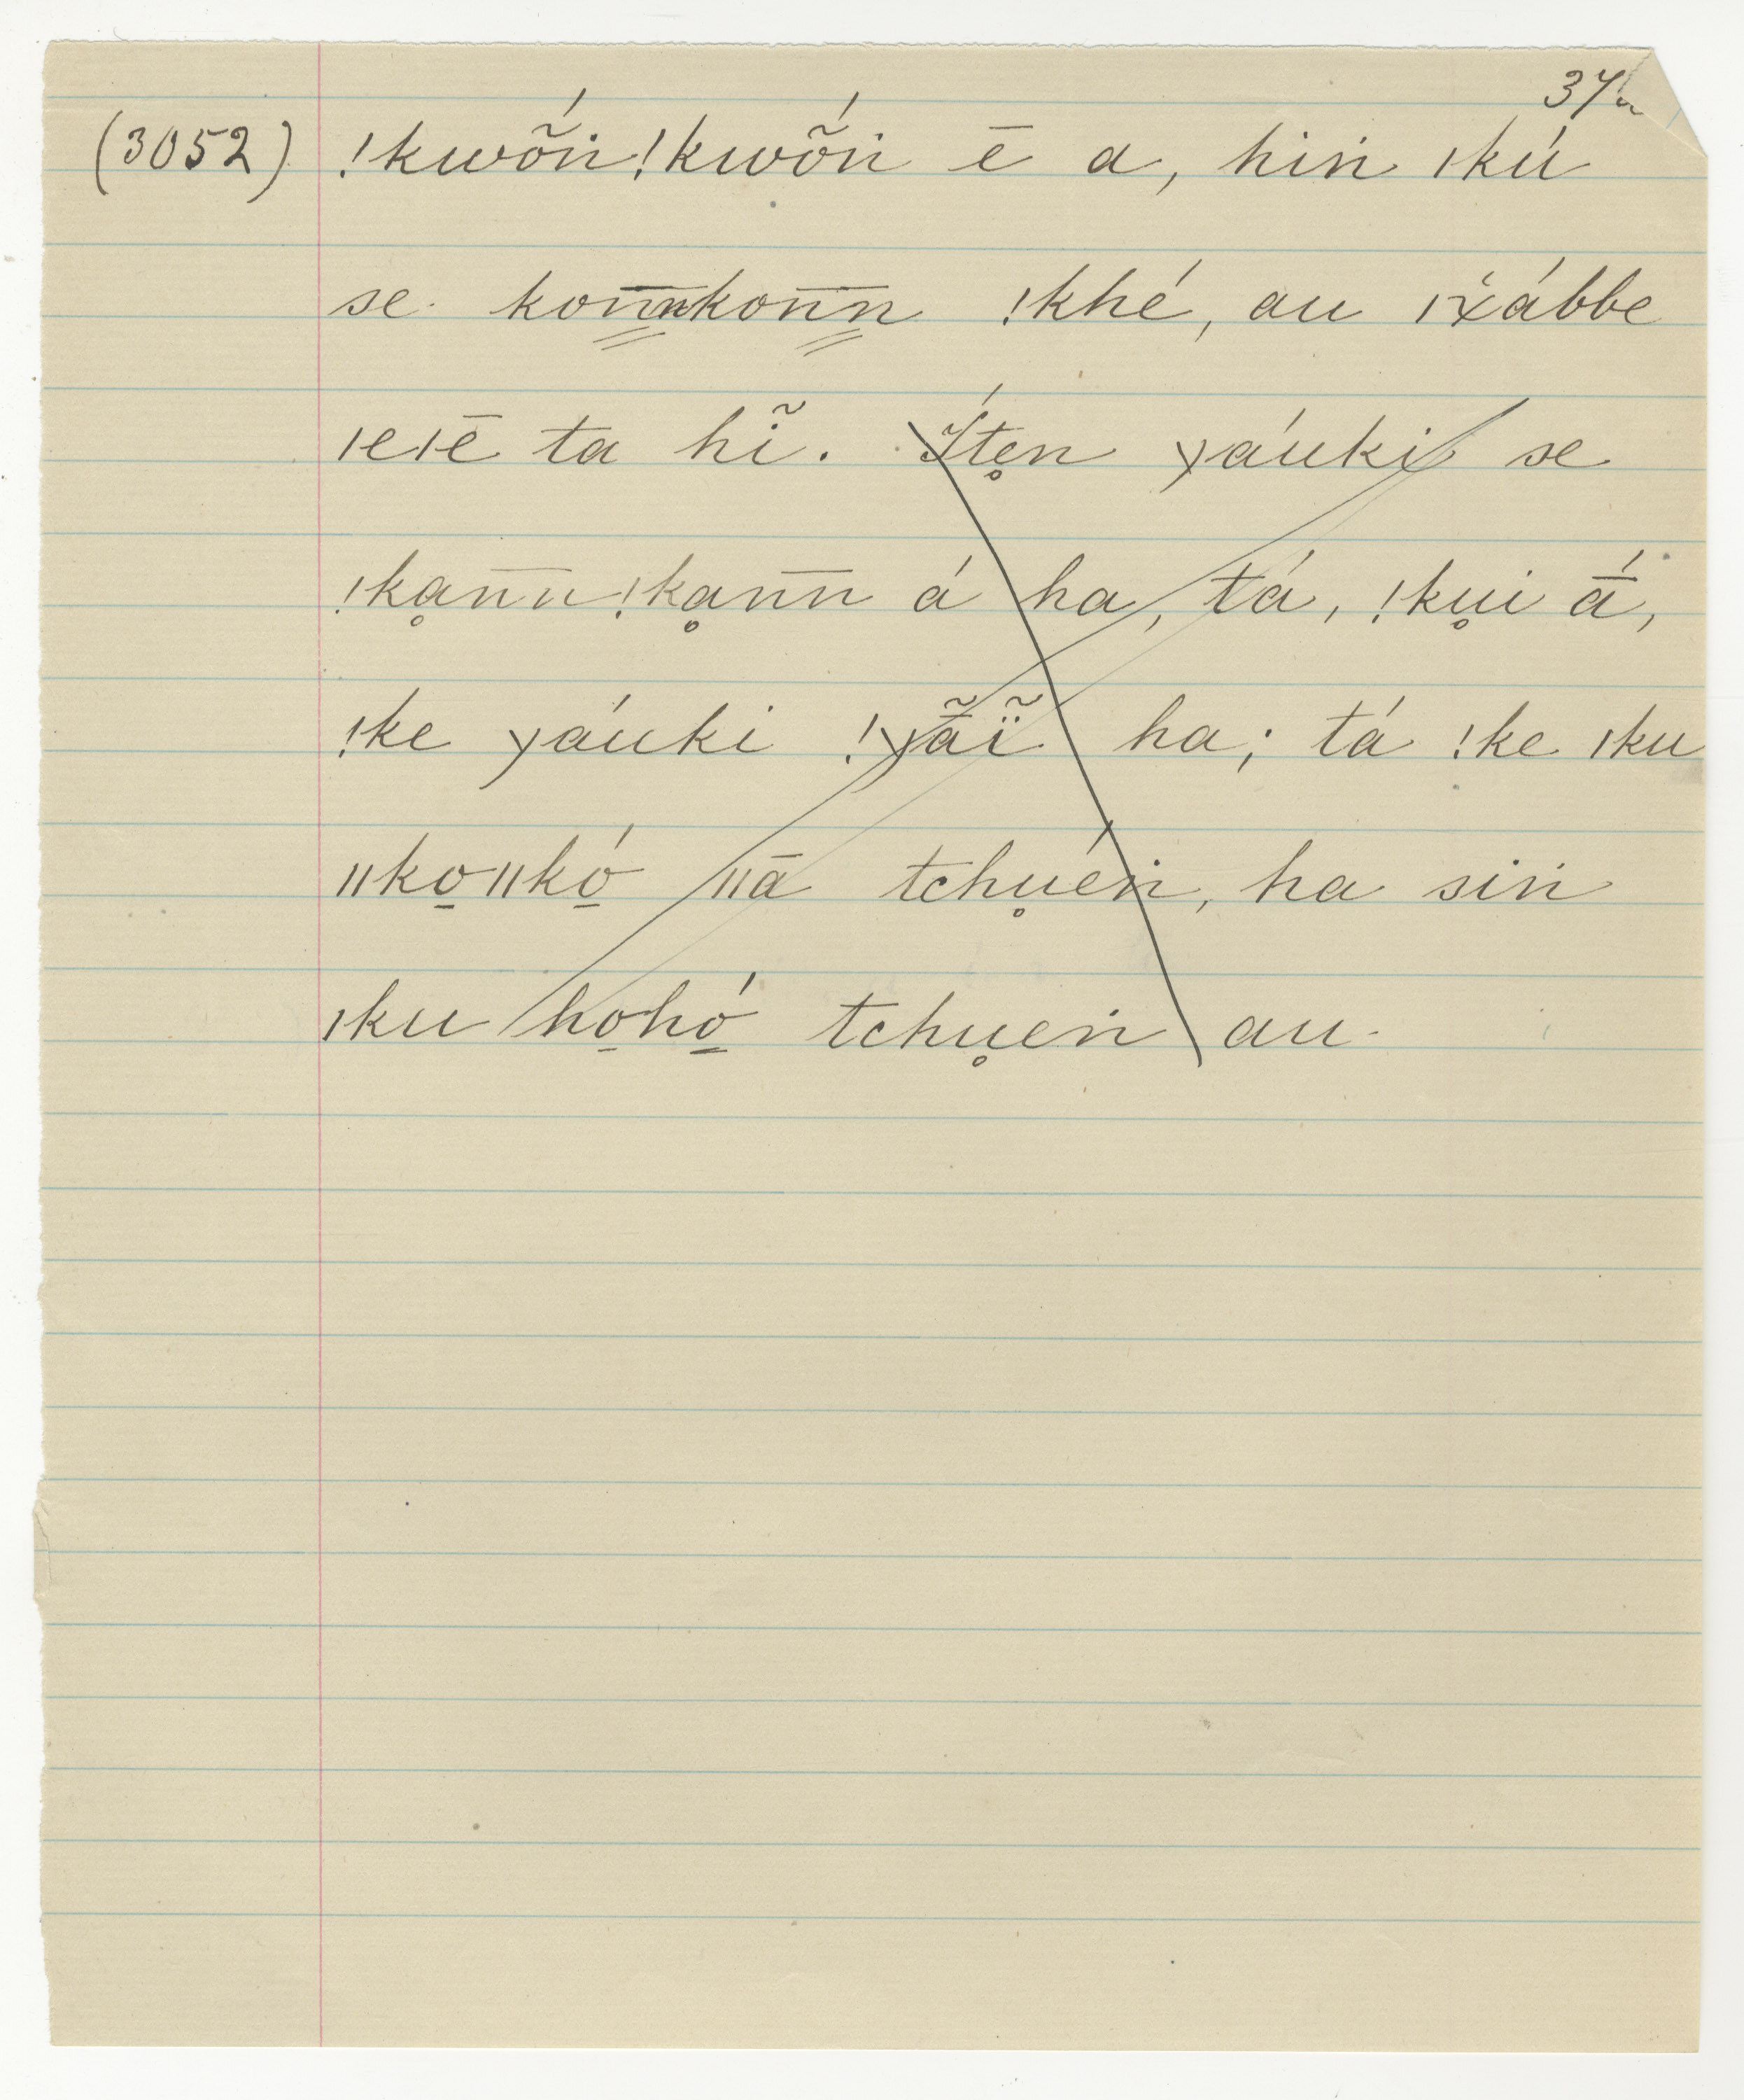 37a
(3052) !kwõ̃́ṅ!kwõ̃́ṅ ē a, hiṅ ıkú
se kon̅n̅kon̅n̅ !khé, au ıẋábbe
ıeıē ta hĩ. Í̆tẹn χáuki se
!kạn̅n̅!kạn̅n̅ á ha, tá, !kụi ā́,
!ke χáuki !χã̄ĩ̈ ha; tá !ke ıku
ııko̠ııkó̠ ııā tchụéṅ, ha siṅ
ıku ho̠hó̠ tchụeṅ au